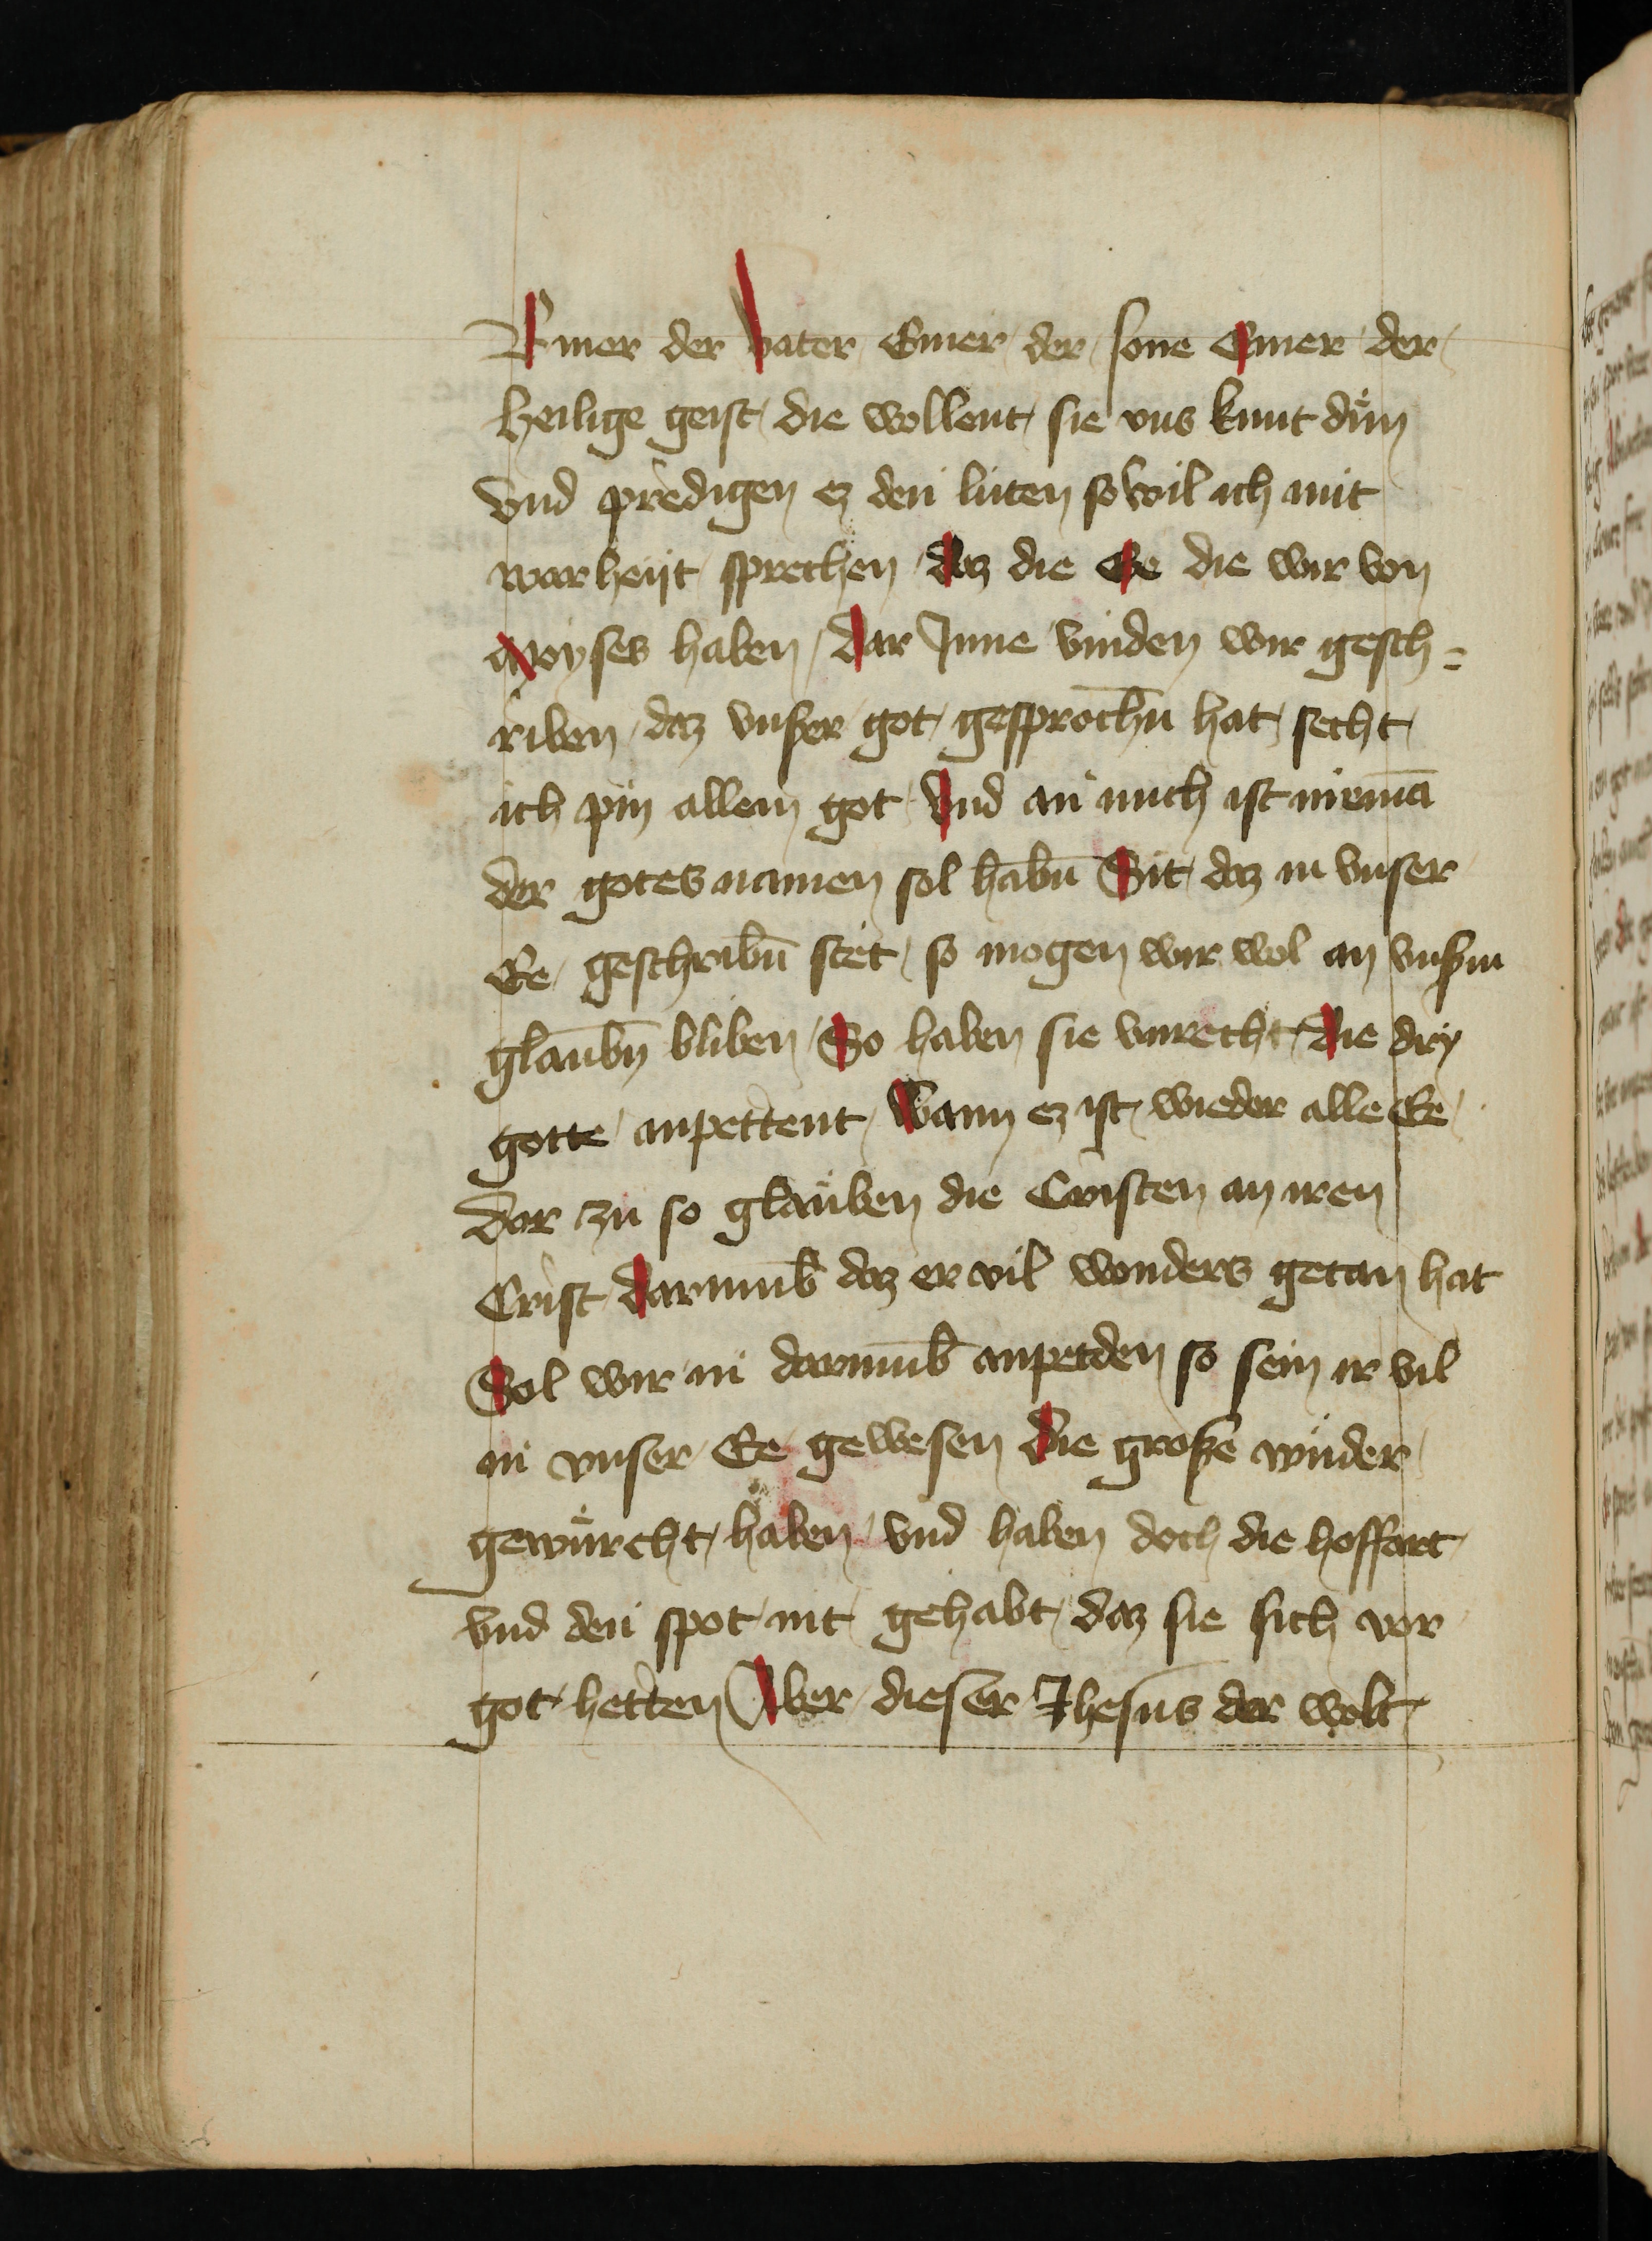 Einer der vater Einer der sone Einer der
heilige geist die wollent sie vns kunt dün
vnd predigen ez den lüten so wil ich mit
warheijt sprechen daz die Ee die wir von
Moyses haben dar Inne vinden wir gesch=
riben daz vnßer got gesprochn̄ hat secht
ich pin allein got vnd an mich ist niemā
der gotes namen sol habn̄ Sit daz in vnser
Ee geschribn̄ stet so mogen wir wol an vnßm
glaubn̄ bliben So haben sie vnrecht die dry
gotte anpettent Wann ez ist wieder alle Ee
Dar zu so glauben die Cristen an iren
Crist darumb̄ daz er vil wonders getan hat
Sol wir in darumb̄ anpetden so sein ir vil
in vnser Ee gewesen die große wunder
gewürcht haben vnd haben doch die hoffart
vnd den spot nit gehabt daz sie sich vor
got hetten Aber dieser Jhesus der wolt